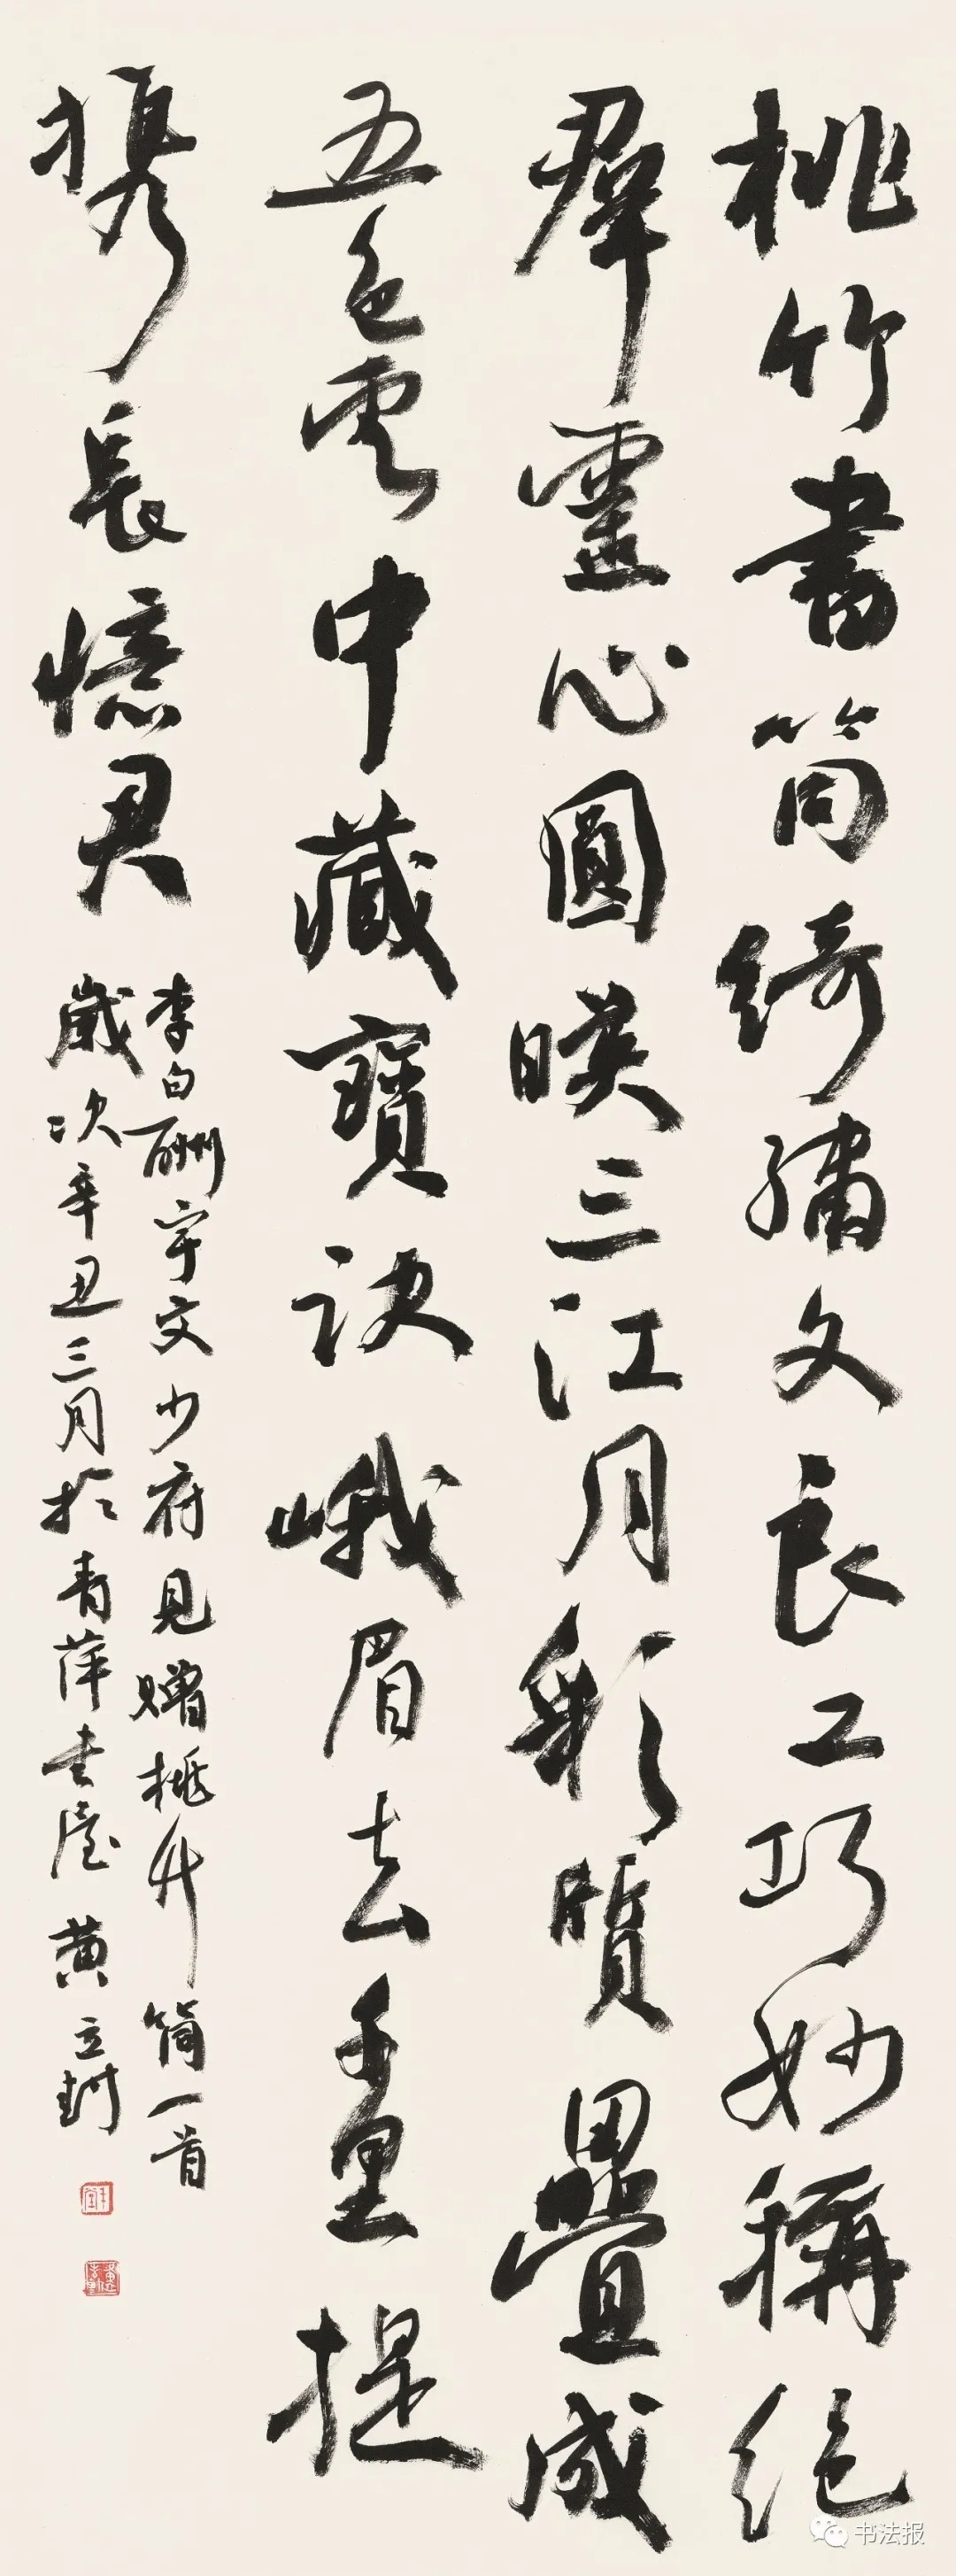 桃竹書筒綺繡文良工巧妙稱絕
羣靈心圓暎三江月彩質疊成
五色雲中藏寶訣峨眉去千里提
携長憶君
李白酬宇文少府見贈桃竹筒一首
歲次辛丑三月於青萍書屋 黃立
书法报